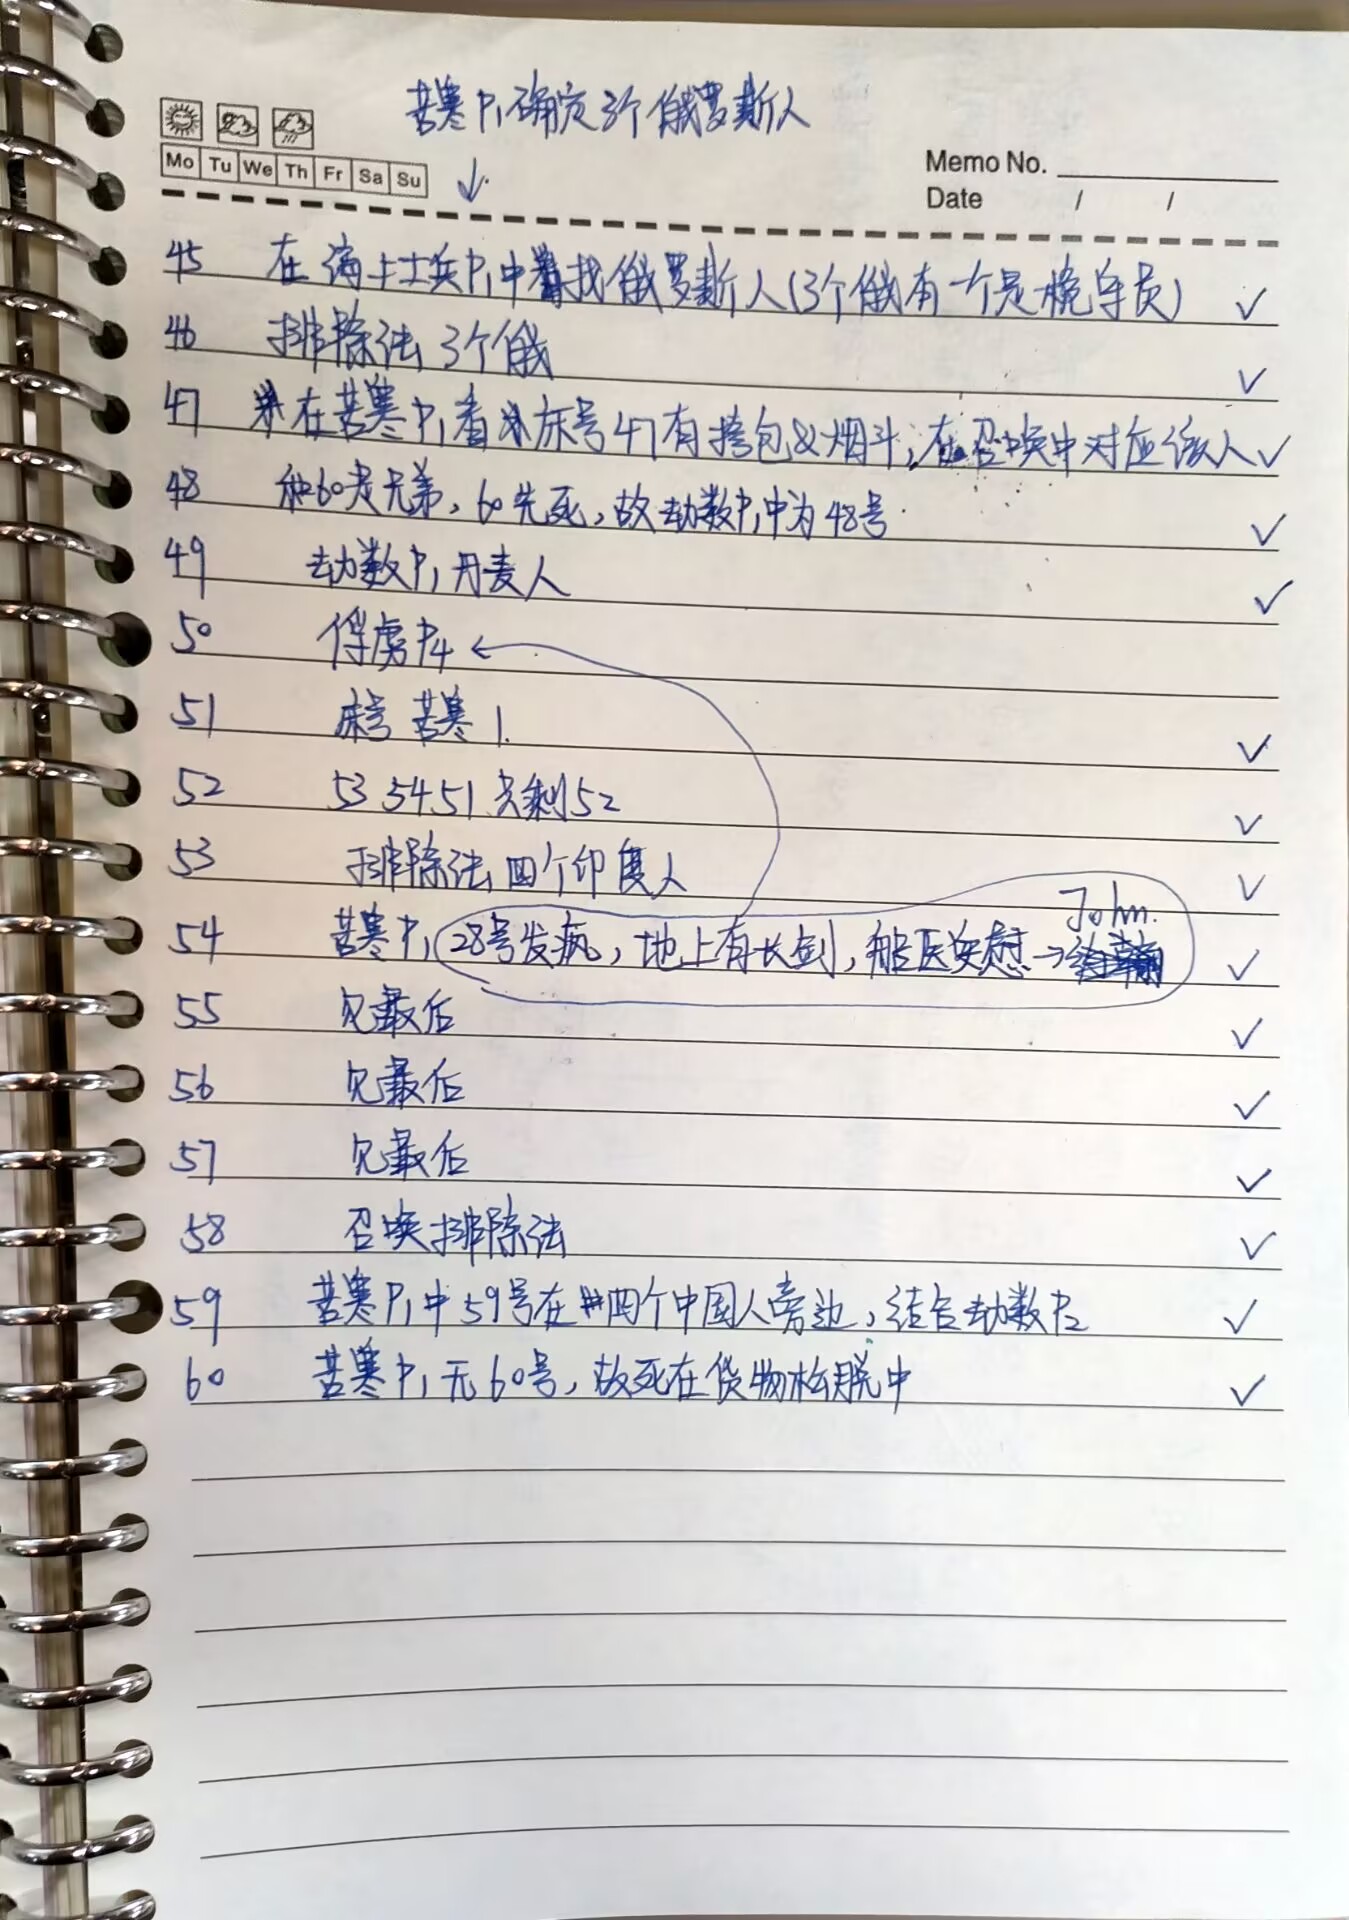 苦寒P1确定3个俄罗斯人
Mo Tu We Th Fr Sa Su
↓
Memo No.
Date / /
45 在海上士兵P1中寻找俄罗斯人(3个俄有一个是桅守员) ✓
46 排除法 3个俄 ✓
47 在苦寒P1看床号47有挎包&烟斗;在召唤中对应该人 ✓
48 和60是兄弟,60先死,故劫数P1中为48号. ✓
49 劫数P1丹麦人 ✓
50 俘虏P4 ←
51 床号 苦寒1. ✓
52 53 54 51 只剩52 ✓
53 排除法 四个印度人 ✓
John.
54 苦寒P1 28号发疯,地上有长剑,船医安慰→ ✓
55 见最后 ✓
56 见最后 ✓
57 见最后 ✓
58 召唤排除法 ✓
59 苦寒P1中59号在四个中国人旁边,结合劫数P2 ✓
60 苦寒P1无60号,故死在货物松脱中 ✓